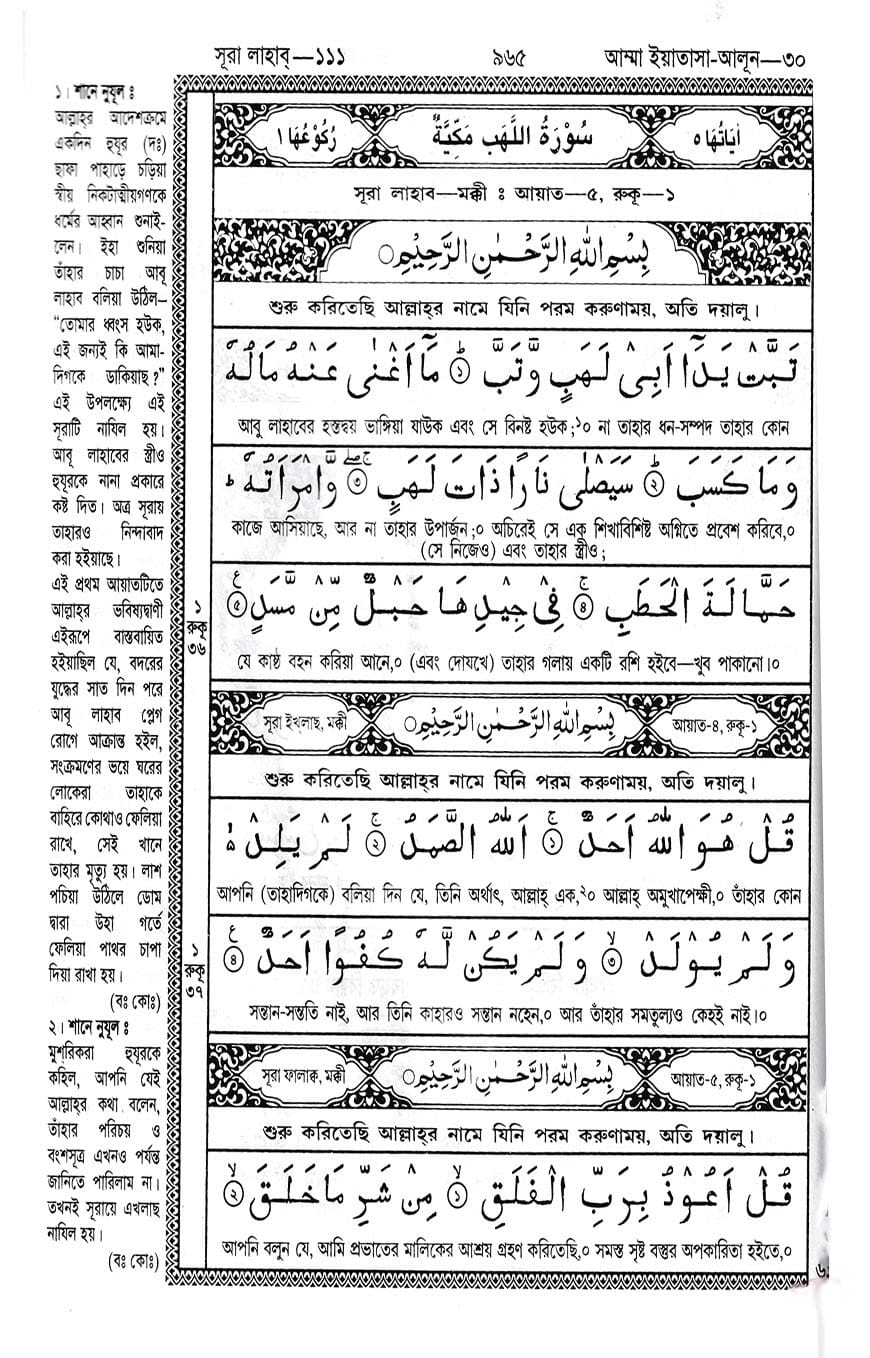 সূরা লাহাব্—১১১
৯৬৫
আম্মা ইয়াতাসা-আলূন—৩০
اٰيَاتُهَا ٥
سُوْرَةُ اللَّهَبِ مَكِّيَّةٌ
رُكُوْعُهَا ١
সূরা লাহাব—মক্কী ঃ আয়াত—৫, রুকূ—১
بِسْمِ اللهِ الرَّحْمٰنِ الرَّحِيْمِ
শুরু করিতেছি আল্লাহ্‌র নামে যিনি পরম করুণাময়, অতি দয়ালু।
تَبَّتْ يَدَآ اَبِىْ لَهَبٍ وَّتَبَّ ۝١ مَآ اَغْنٰى عَنْهُ مَالُهٗ
আবু লাহাবের হস্তদ্বয় ভাঙ্গিয়া যাউক এবং সে বিনষ্ট হউক;১০ না তাহার ধন-সম্পদ তাহার কোন
وَمَا كَسَبَ ۝٢ سَيَصْلٰى نَارًا ذَاتَ لَهَبٍ ۝٣ وَّامْرَاَتُهٗ
কাজে আসিয়াছে, আর না তাহার উপার্জন;০ অচিরেই সে এক শিখাবিশিষ্ট অগ্নিতে প্রবেশ করিবে,০
(সে নিজেও) এবং তাহার স্ত্রীও;
حَمَّالَةَ الْحَطَبِ ۝٤ فِىْ جِيْدِهَا حَبْلٌ مِّنْ مَّسَدٍ ۝٥
যে কাষ্ঠ বহন করিয়া আনে,০ (এবং দোযখে) তাহার গলায় একটি রশি হইবে—খুব পাকানো।০
১
রুকূ
৩৬
সূরা ইখ্‌লাছ, মক্কী
بِسْمِ اللهِ الرَّحْمٰنِ الرَّحِيْمِ
আয়াত-৪, রুকূ-১
শুরু করিতেছি আল্লাহ্‌র নামে যিনি পরম করুণাময়, অতি দয়ালু।
قُلْ هُوَ اللهُ اَحَدٌ ۝١ اَللهُ الصَّمَدُ ۝٢ لَمْ يَلِدْ ۙ
আপনি (তাহাদিগকে) বলিয়া দিন যে, তিনি অর্থাৎ, আল্লাহ্ এক,২০ আল্লাহ্ অমুখাপেক্ষী,০ তাঁহার কোন
وَلَمْ يُوْلَدْ ۝٣ وَلَمْ يَكُنْ لَّهٗ كُفُوًا اَحَدٌ ۝٤
সন্তান-সন্ততি নাই, আর তিনি কাহারও সন্তান নহেন,০ আর তাঁহার সমতুল্যও কেহই নাই।০
১
রুকূ
৩৭
সূরা ফালাক, মক্কী
بِسْمِ اللهِ الرَّحْمٰنِ الرَّحِيْمِ
আয়াত-৫, রুকূ-১
শুরু করিতেছি আল্লাহ্‌র নামে যিনি পরম করুণাময়, অতি দয়ালু।
قُلْ اَعُوْذُ بِرَبِّ الْفَلَقِ ۝١ مِنْ شَرِّ مَا خَلَقَ ۝٢
আপনি বলুন যে, আমি প্রভাতের মালিকের আশ্রয় গ্রহণ করিতেছি,০ সমস্ত সৃষ্ট বস্তুর অপকারিতা হইতে,০
১। শানে নুযূল ঃ
আল্লাহ্‌র আদেশক্রমে
একদিন হুযূর (দঃ)
ছাফা পাহাড়ে চড়িয়া
স্বীয় নিকটাত্মীয়গণকে
ধর্মের আহ্বান শুনাই-
লেন। ইহা শুনিয়া
তাঁহার চাচা আবূ
লাহাব বলিয়া উঠিল–
"তোমার ধ্বংস হউক,
এই জন্যই কি আমা-
দিগকে ডাকিয়াছ?"
এই উপলক্ষ্যে এই
সূরাটি নাযিল হয়।
আবূ লাহাবের স্ত্রীও
হুযূরকে নানা প্রকারে
কষ্ট দিত। অত্র সূরায়
তাহারও নিন্দাবাদ
করা হইয়াছে।
এই প্রথম আয়াতটিতে
আল্লাহ্‌র ভবিষ্যদ্বাণী
এইরূপে বাস্তবায়িত
হইয়াছিল যে, বদরের
যুদ্ধের সাত দিন পরে
আবূ লাহাব প্লেগ
রোগে আক্রান্ত হইল,
সংক্রমণের ভয়ে ঘরের
লোকেরা তাহাকে
বাহিরে কোথাও ফেলিয়া
রাখে, সেই খানে
তাহার মৃত্যু হয়। লাশ
পচিয়া উঠিলে ডোম
দ্বারা উহা গর্তে
ফেলিয়া পাথর চাপা
দিয়া রাখা হয়।
(বঃ কোঃ)
২। শানে নুযূল ঃ
মুশরিকরা হুযূরকে
কহিল, আপনি যেই
আল্লাহ্‌র কথা বলেন,
তাঁহার পরিচয় ও
বংশসূত্র এখনও পর্যন্ত
জানিতে পারিলাম না।
তখনই সূরায়ে এখলাছ
নাযিল হয়।
(বঃ কোঃ)